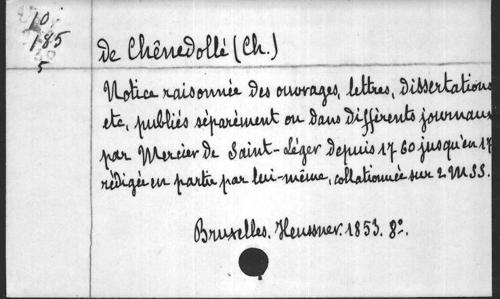 10
185
5
de Chênedollé (Ch.)
Notice raisonnée des ouvrages, lettres, dissertations
etc, publiés séparément ou dans différents journaux
par Mercier de Saint-Léger depuis 1760 jusqu'en 17
rédigée en partie par lui-même, collationnée sur 2 MSS.
Bruxelles. Heussner. 1853. 8º.